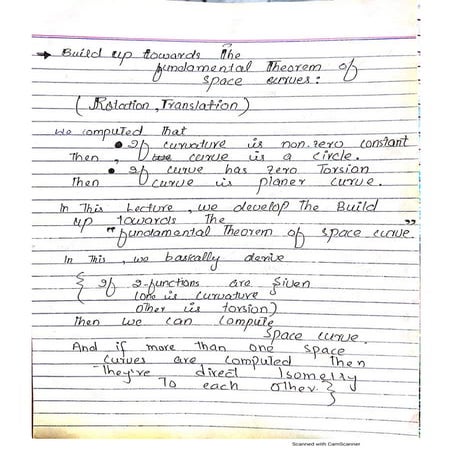 → Build up towards the
fundamental Theorem of
space curves:
(Rotation, Translation)
we computed that
• If curvature is non-zero constant
Then, curve is a circle.
• If curve has zero Torsian
Then curve is planer curve.
In This Lecture, we develop The Build
up towards The
"fundamental Theorem of space curve."
In this, we basically derive
{ If 2-functions are given
(one is curvature
other is torsion)
Then we can compute
space curve.
And if more than one space
curves are computed then
They're direct Isomerry
To each other. }
Scanned with CamScanner